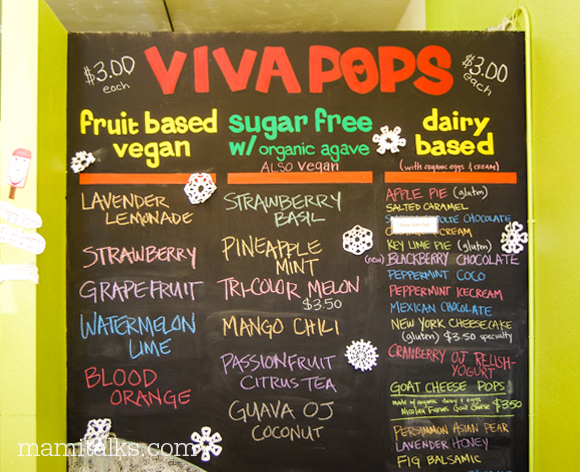 $3.00
each
VIVA POPS
$3.00
each
fruit based
vegan
LAVENDER
LEMONADE
STRAWBERRY
GRAPEFRUIT
WATERMELON
LIME
BLOOD
ORANGE
sugar free
w/ organic agave
ALSO VEGAN
STRAWBERRY
BASIL
PINEAPPLE
MINT
TRI-COLOR MELON
$3.50
MANGO CHILI
PASSIONFRUIT
CITRUS TEA
GUAVA OJ
COCONUT
dairy
based
(with organic eggs & CREAM)
APPLE PIE (gluten)
SALTED CARAMEL
CHOCOLATE
CREAM
KEY LIME PIE (gluten)
(new) BLACKBERRY CHOCOLATE
PEPPERMINT COCO
PEPPERMINT ICECREAM
MEXICAN CHOCOLATE
NEW YORK CHEESECAKE
(gluten) $3.50 specialty
CRANBERRY OJ RELISH-
YOGURT
GOAT CHEESE POPS
made w/ organic dairy & eggs
Farms Goat Cheese $3.50
PERSIMMON ASIAN PEAR
LAVENDER HONEY
FIG BALSAMIC
mamitalks.com